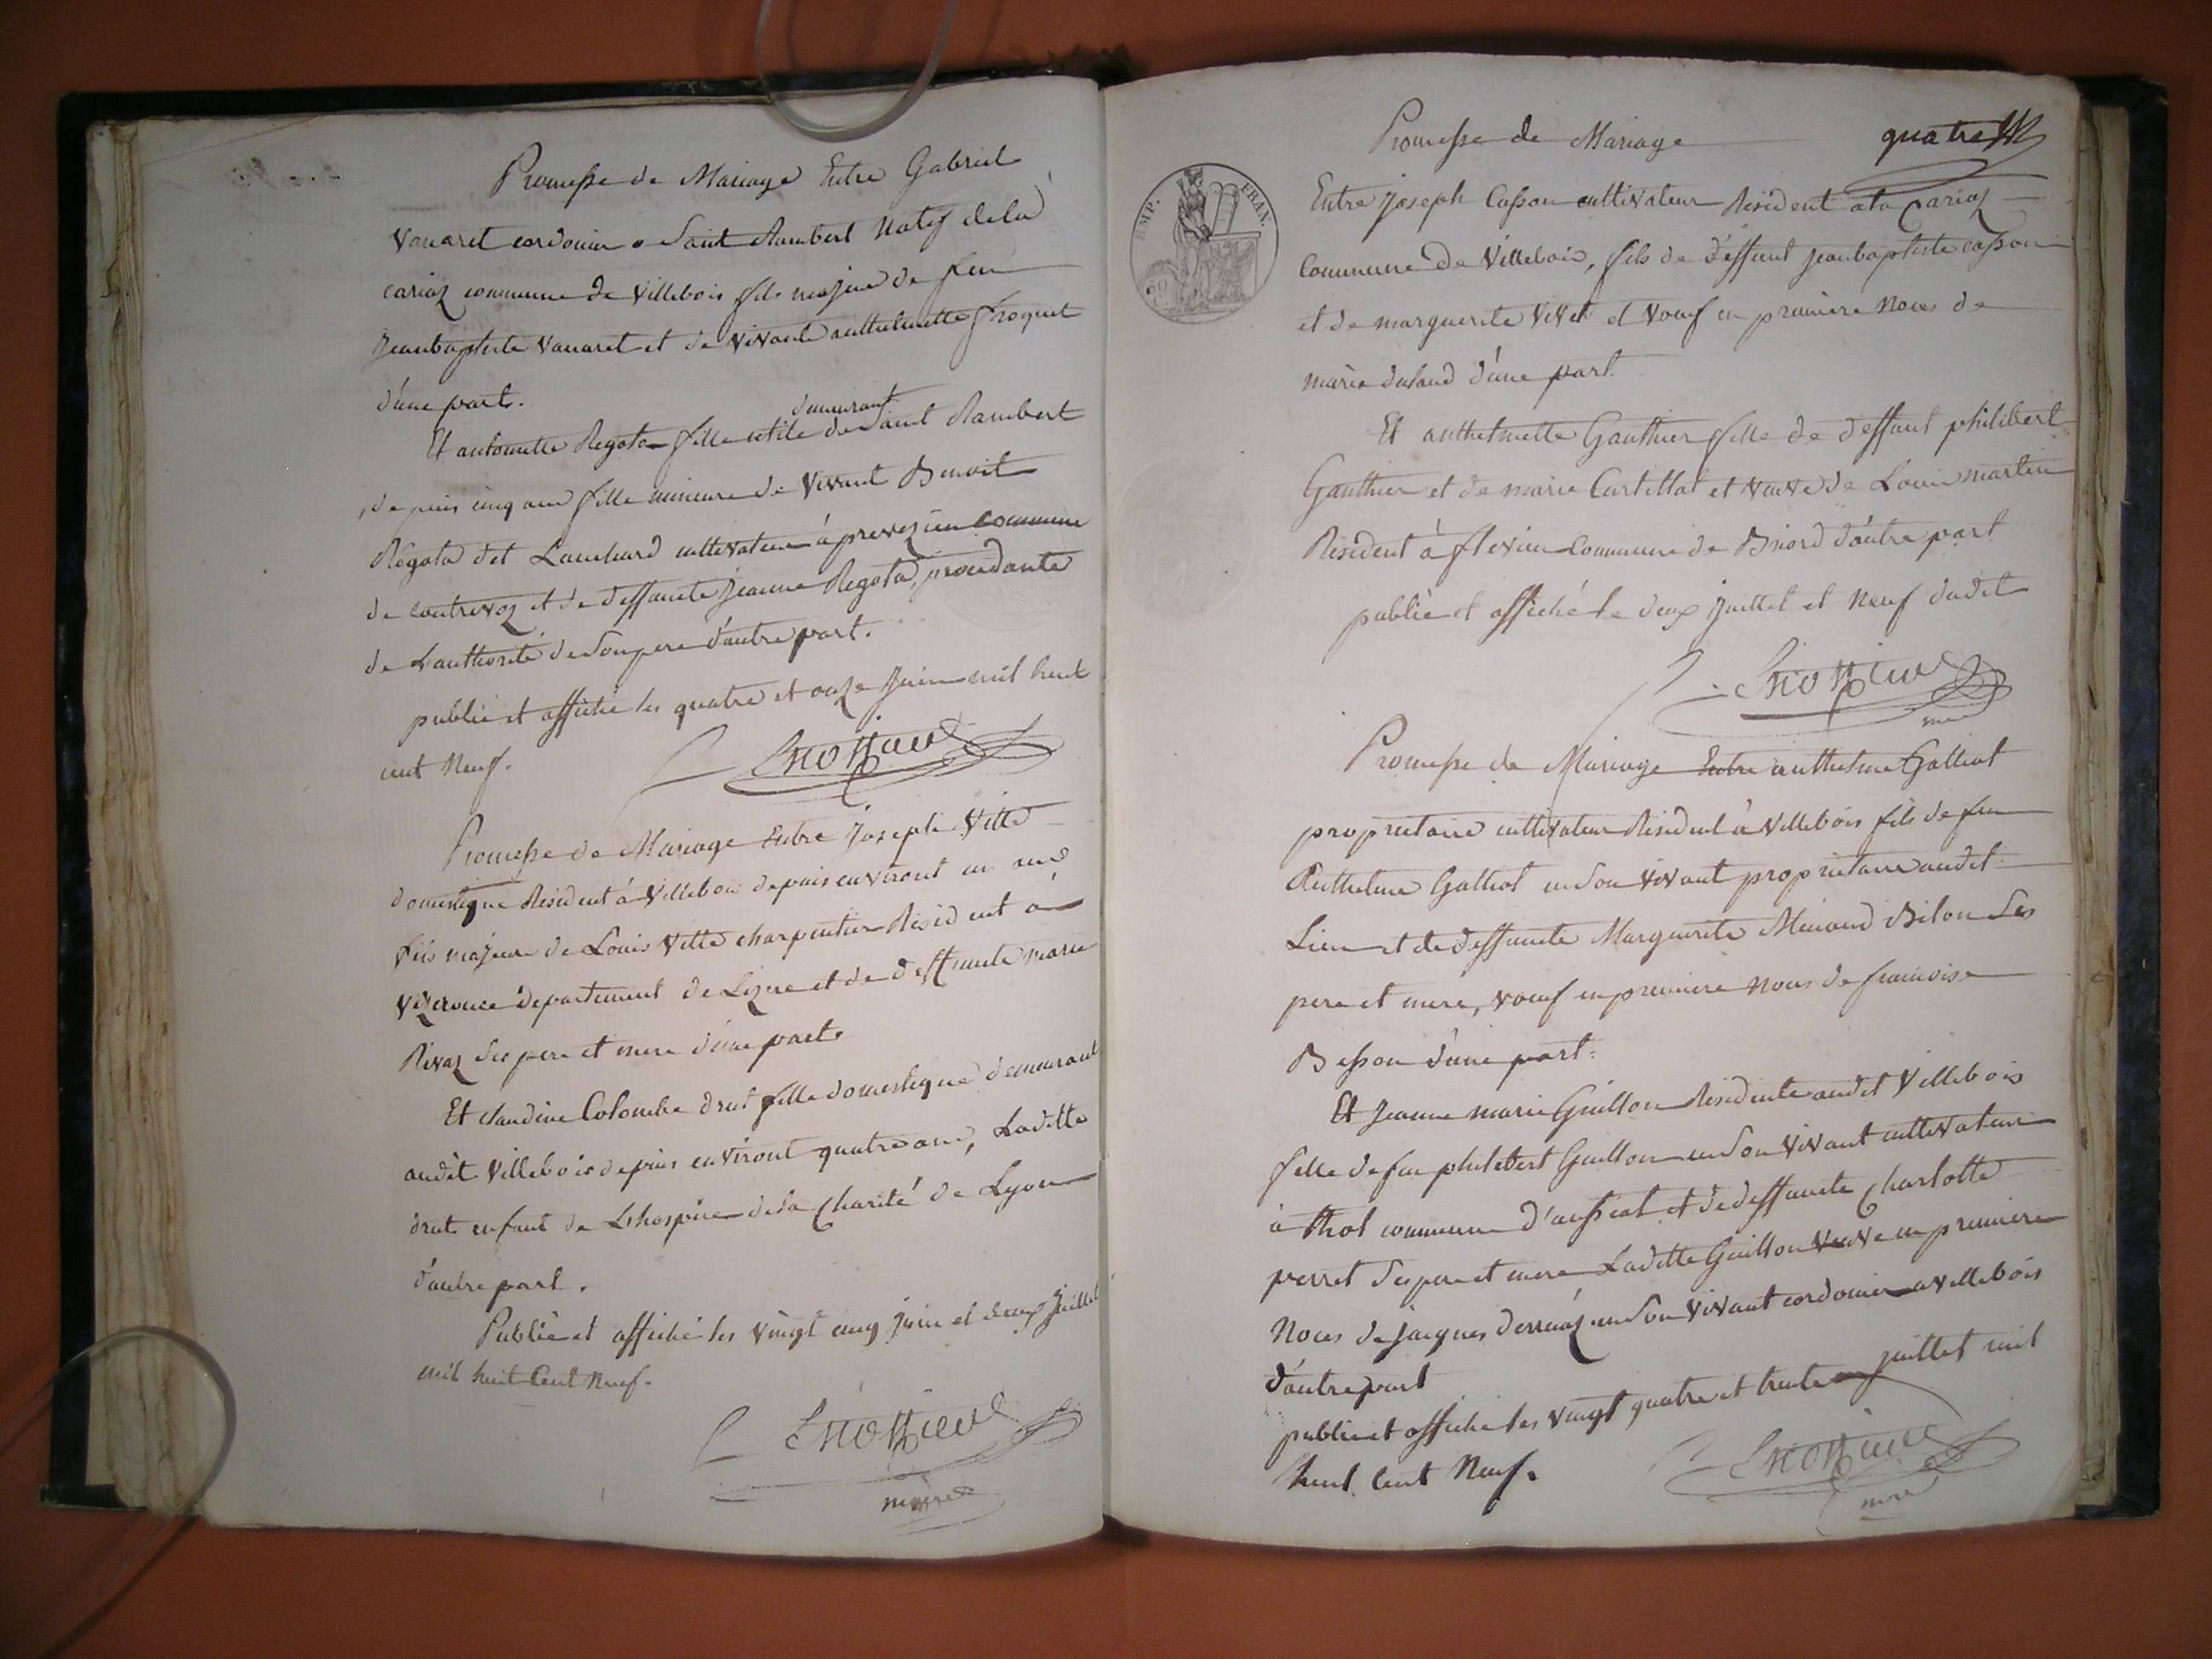 Promesse de Mariage Entre Gabriel
Vanaret cordonier a Saint Rambert Natif de la
cariaz commune de Villebois fils majeur de feu
Jeanbaptiste Vanaret et de Vivante anthelmette froquet
d'une part.
Et antoinette Regota fille demeurant Saint Rambert
depuis cinq ans fille mineure de Vivant Benoit
Régota dit cultivateur à commune
de contrevoz et de deffuncte Jeanne Regota, procedante
de Lauthorité de Son pere d'autre part.
publié et affiché les quatre et onze Juin mil huit
cent Neuf.
Promesse de Mariage Entre Joseph Vitte
domestique Résident à Villebois depuis environt un ans
fils majeur de Louis Vitte charpentier Résident a
département de Lizere et de deffuncte marie
Rivaz Ses pere et mere d'une part
Et claudine Colombe drut fille domestique demeurant
audit Villebois depuis environt quatre ans, Laditte
drut enfant de Lhospice de la Charité de Lyon
d'autre part.
Publié et affiché les vingt cinq juin et deux Juillet
mil huit Cent Neuf.
maire
Promesse de Mariage
quatre
EMP. FRAN.
Entre Joseph Casson cultivateur Résident a la Cariaz
Commune de Villebois, fils de déffunt jeanbaptiste casson
et de marguerite Vivet et Veuf en première Noces de
marie d'une part.
Et anthelmette Gauthier fille de deffunt philibert
Gauthier et de marie et veuve de Louis martin
Résident à flevieu Commune de Briord d'autre part
publié et affiché le deux Juillet et Neuf dudit
mere
Promesse de Mariage Entre anthelme Galliot
proprietaire cultivateur Résident à Villebois fils de feu
Anthelme Galliot en Son Vivant proprietaire audit
Lieu et de deffuncte Marguerite Bilon Ses
pere et mere, veuf en premiere Noces de francoise
Besson d'une part.
Et Jeanne marie Guillon Residente audit Villebois
fille de feu philibert Guillon en Son Vivant cultivateur
à thol commune d' et de deffuncte Charlotte
perret Ses pere et mere Laditte Guillon veuve en premiere
Noces de Jacques en Son Vivant cordonier a Villebois
d'autre part
publié et affiché les vingt quatre et trente juillet mil
huit Cent Neuf.
mere